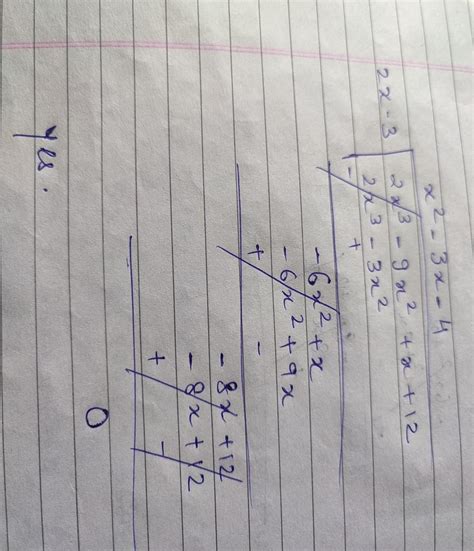 x² - 3x - 4
2x - 3
2x³ - 9x² + x + 12
2x³ - 3x²
- +
- 6x² + x
- 6x² + 9x
+ -
- 8x + 12
- 8x + 12
+ -
0
Yes.